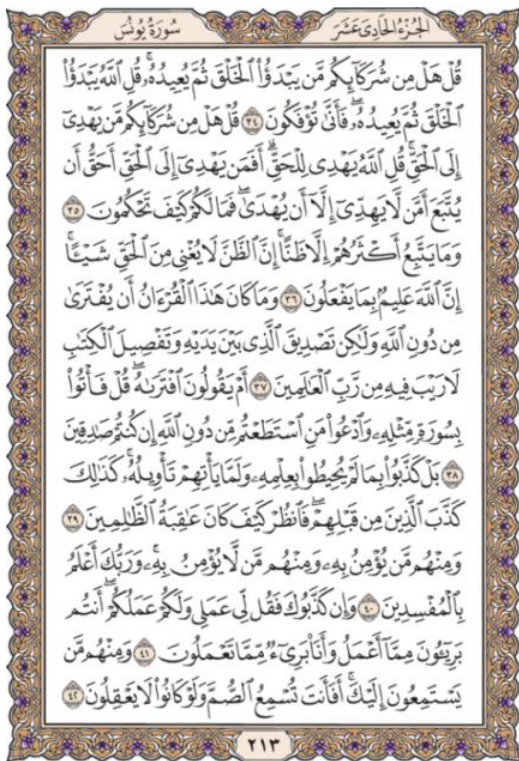 سُورَةُ يُونُسَ
الجُزْءُ الحَادِى عَشَرَ
قُلْ هَلْ مِن شُرَكَآئِكُم مَّن يَبْدَؤُاْ ٱلْخَلْقَ ثُمَّ يُعِيدُهُۥۚ قُلِ ٱللَّهُ يَبْدَؤُاْ
ٱلْخَلْقَ ثُمَّ يُعِيدُهُۥۖ فَأَنَّىٰ تُؤْفَكُونَ ٣٤ قُلْ هَلْ مِن شُرَكَآئِكُم مَّن يَهْدِىٓ
إِلَى ٱلْحَقِّۚ قُلِ ٱللَّهُ يَهْدِى لِلْحَقِّۗ أَفَمَن يَهْدِىٓ إِلَى ٱلْحَقِّ أَحَقُّ أَن
يُتَّبَعَ أَمَّن لَّا يَهِدِّىٓ إِلَّآ أَن يُهْدَىٰۖ فَمَا لَكُمْ كَيْفَ تَحْكُمُونَ ٣٥
وَمَا يَتَّبِعُ أَكْثَرُهُمْ إِلَّا ظَنًّاۚ إِنَّ ٱلظَّنَّ لَا يُغْنِى مِنَ ٱلْحَقِّ شَيْـًٔاۚ
إِنَّ ٱللَّهَ عَلِيمٌۢ بِمَا يَفْعَلُونَ ٣٦ وَمَا كَانَ هَٰذَا ٱلْقُرْءَانُ أَن يُفْتَرَىٰ
مِن دُونِ ٱللَّهِ وَلَٰكِن تَصْدِيقَ ٱلَّذِى بَيْنَ يَدَيْهِ وَتَفْصِيلَ ٱلْكِتَٰبِ
لَا رَيْبَ فِيهِ مِن رَّبِّ ٱلْعَٰلَمِينَ ٣٧ أَمْ يَقُولُونَ ٱفْتَرَىٰهُۖ قُلْ فَأْتُواْ
بِسُورَةٍ مِّثْلِهِۦ وَٱدْعُواْ مَنِ ٱسْتَطَعْتُم مِّن دُونِ ٱللَّهِ إِن كُنتُمْ صَٰدِقِينَ
٣٨ بَلْ كَذَّبُواْ بِمَا لَمْ يُحِيطُواْ بِعِلْمِهِۦ وَلَمَّا يَأْتِهِمْ تَأْوِيلُهُۥۚ كَذَٰلِكَ
كَذَّبَ ٱلَّذِينَ مِن قَبْلِهِمْۖ فَٱنظُرْ كَيْفَ كَانَ عَٰقِبَةُ ٱلظَّٰلِمِينَ ٣٩
وَمِنْهُم مَّن يُؤْمِنُ بِهِۦ وَمِنْهُم مَّن لَّا يُؤْمِنُ بِهِۦۚ وَرَبُّكَ أَعْلَمُ
بِٱلْمُفْسِدِينَ ٤٠ وَإِن كَذَّبُوكَ فَقُل لِّى عَمَلِى وَلَكُمْ عَمَلُكُمْۖ أَنتُم
بَرِيٓـُٔونَ مِمَّآ أَعْمَلُ وَأَنَا۠ بَرِىٓءٌ مِّمَّا تَعْمَلُونَ ٤١ وَمِنْهُم مَّن
يَسْتَمِعُونَ إِلَيْكَۚ أَفَأَنتَ تُسْمِعُ ٱلصُّمَّ وَلَوْ كَانُواْ لَا يَعْقِلُونَ ٤٢
٢١٣